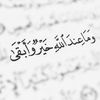 وَمَا عِندَ ٱللَّهِ خَيْرٌ وَأَبْقَىٰ